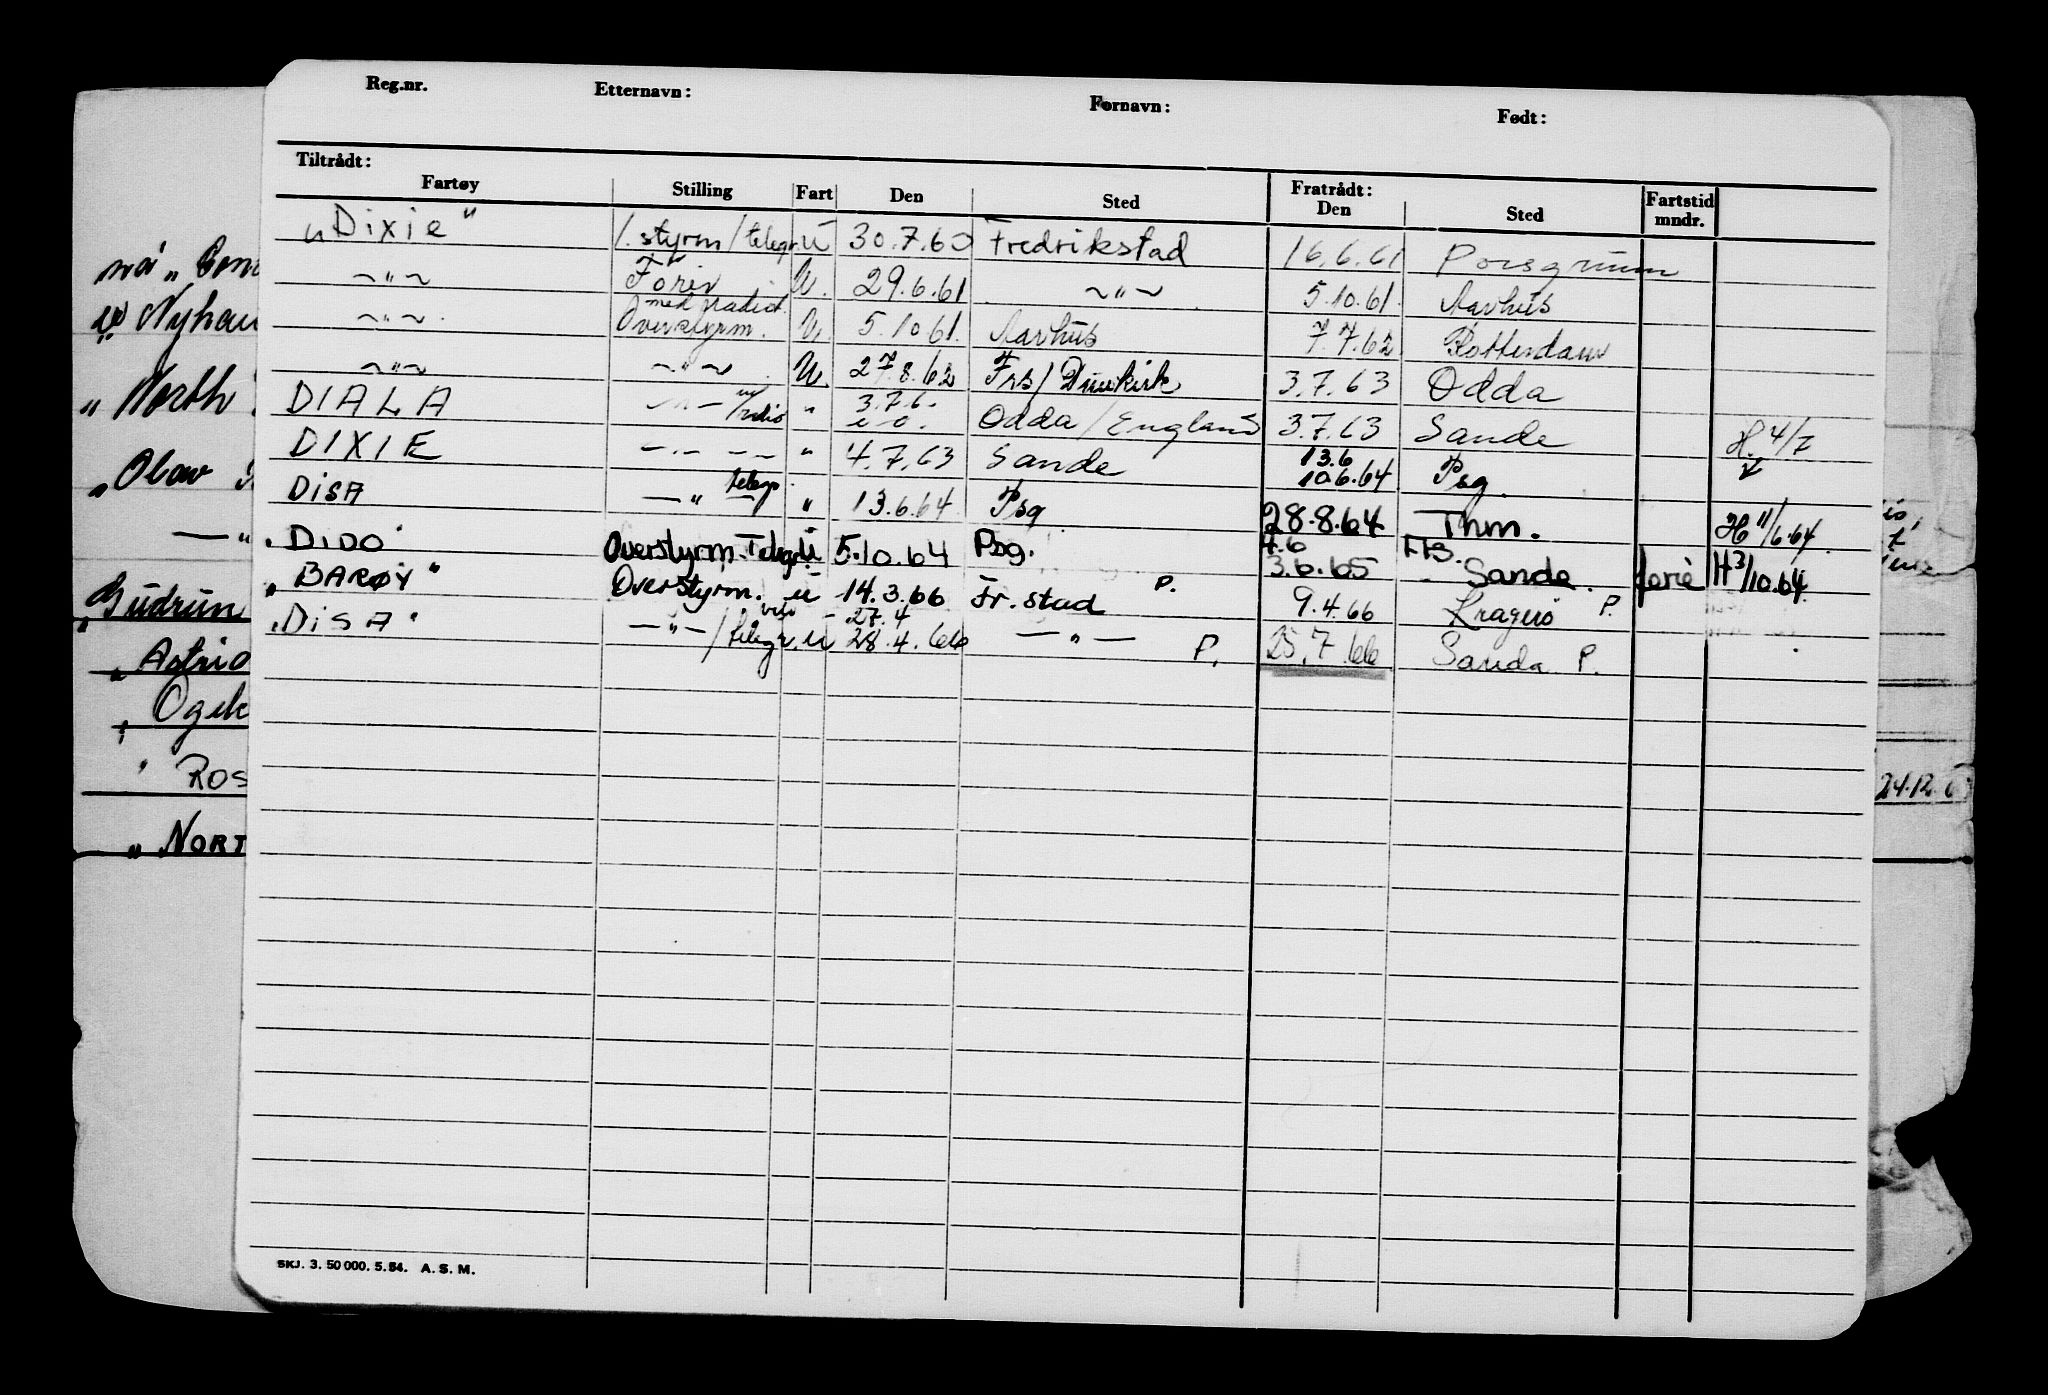 Reg.nr. Etternavn: Fornavn: Født:
Tiltrådt: Fratrådt:
Fartøy Stilling Fart Den Sted Den Sted Fartstid mndr.
„Dixie“ 1. styrm/telegr. U 30.7.60 Fredrikstad 16.6.61 Porsgrunn
—„— U. 29.6.61 —„— 5.10.61. Aarhus
—„— Overstyrm. U. 5.10.61. Aarhus 7.7.62 Rotterdam
—„— —„— U. 27.8.62 Frs/Dunkirk 3.7.63 Odda
DIALA —„— m/radio „ 3.7.6 Odda/England 3.7.63 Sande H. 4/7
DIXIE —„— —— „ 4.7.63 Sande 13.6 10.6.64 Psg.
DISA —„— telegr. „ 13.6.64 Psg 28.8.64 Thm. H 11/6.64.
„DIDO“ Overstyrm. Telegr. U 5.10.64 Psg. 4.6 3.6.65 Sande. ferie H 3/10.64.
„BARØY“ Overstyrm. u 14.3.66 Fr.stad P. 9.4.66 Kragerø P.
„DISA“ —„—/telegr. u 27.4 28.4.66 —„— P. 25.7.66 Sanda P.
SKJ. 3. 50 000. 5.54. A. S. M.
„ North
„ Olav
—„—
„Gudrun
„ Astrid
" Ros
24.12.6
„ NORT